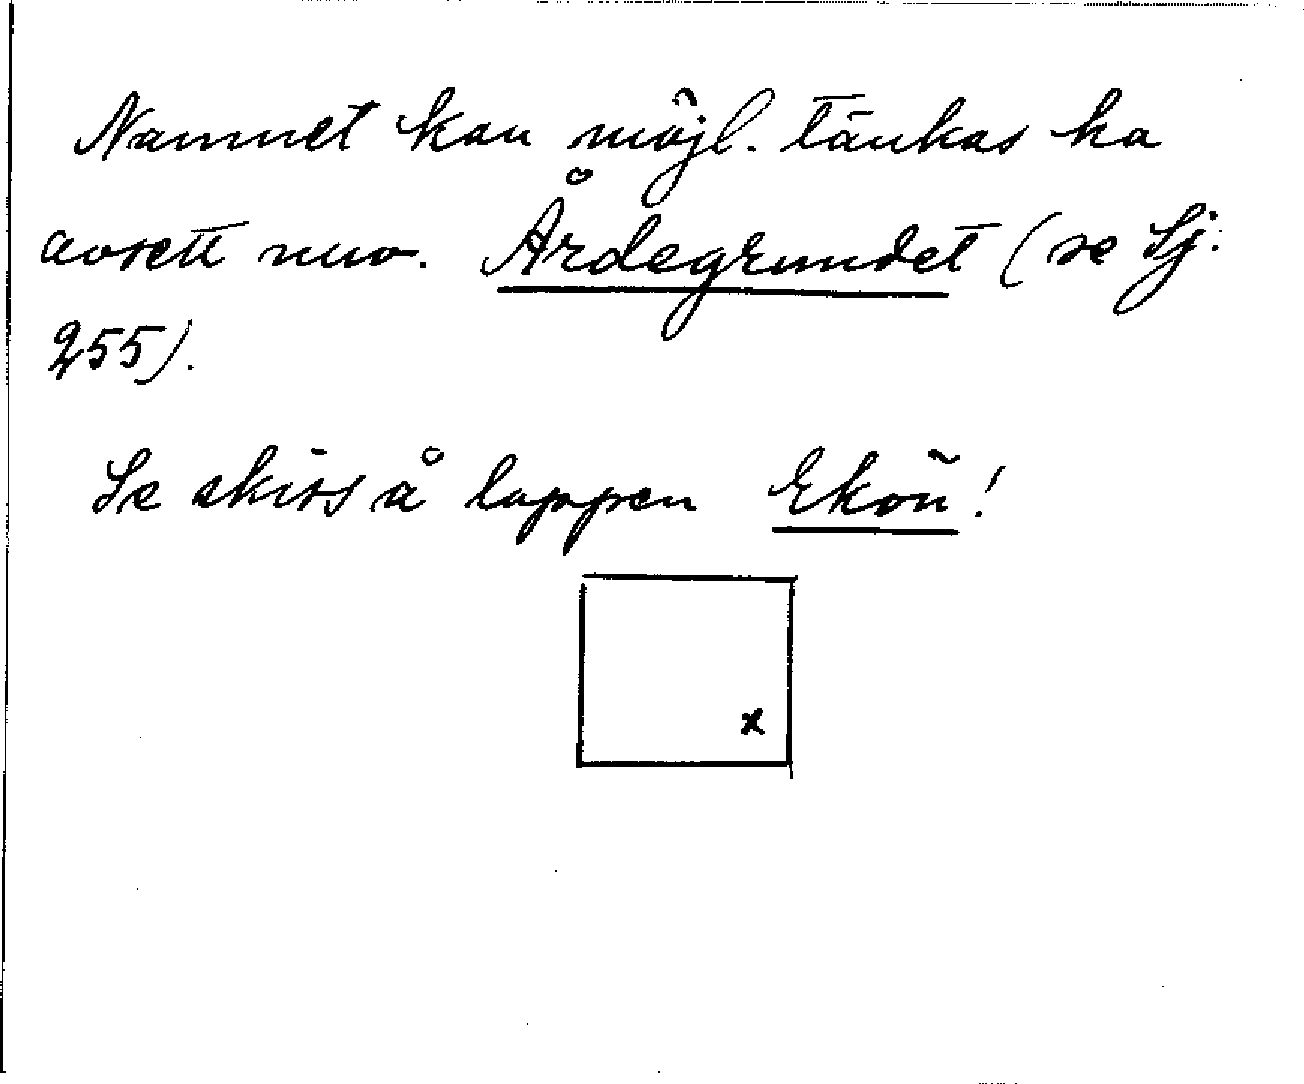 Namnet kan möjl. tänkas ha
avsett nuv. Årdegrundet (se Sj:
255).
Se skiss å lappen Ekön!
x